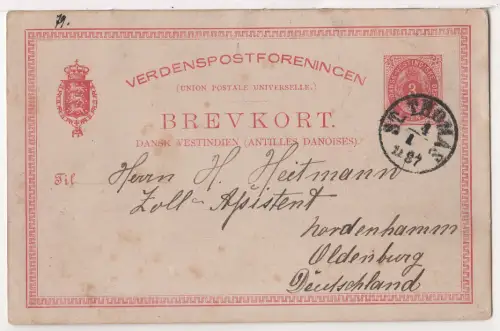 79.
VERDENSPOSTFORENINGEN
(UNION POSTALE UNIVERSELLE.)
BREVKORT.
DANSK VESTINDIEN (ANTILLES DANOISES)
3
ST. THOMAS
Til
Herrn H. Heitmann
Zoll-Assistent
Nordenhamm
Oldenburg
Deutschland